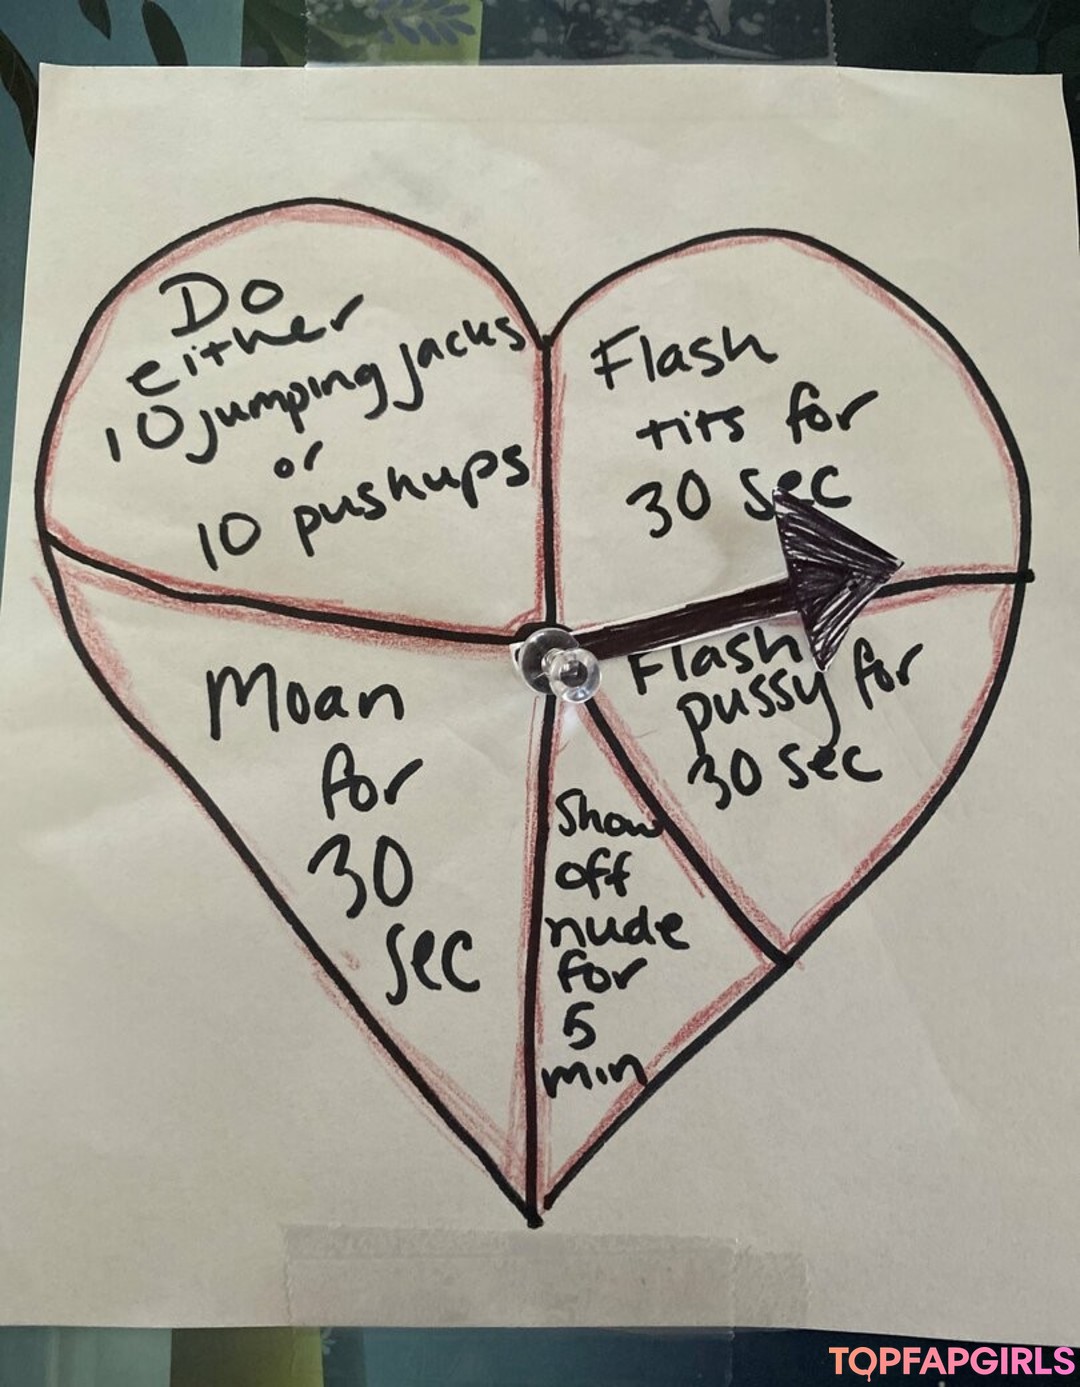 Do
either
10 jumping jacks
or
10 pushups
Flash
tits for
30 sec
Flash
pussy for
30 sec
Show
off
nude
for
5
min
Moan
for
30
sec
TOPFAPGIRLS